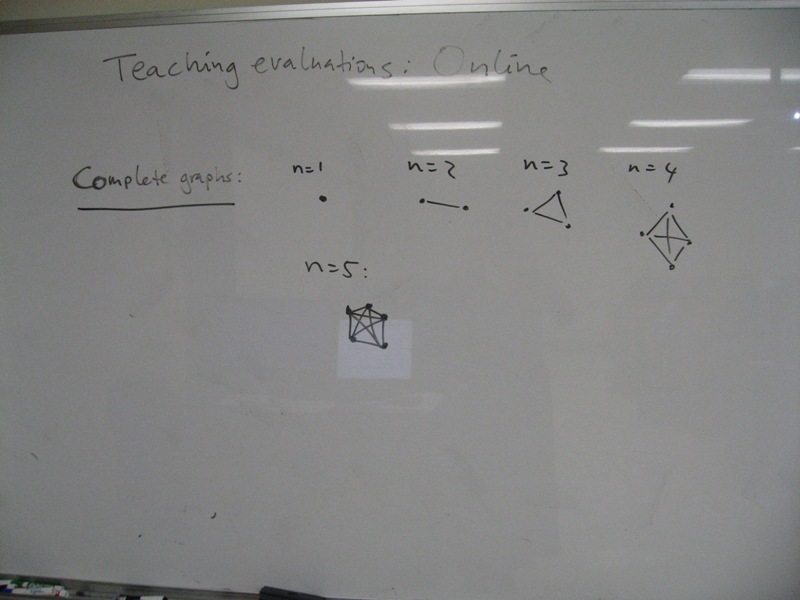 Teaching evaluations: Online
Complete graphs: n=1 n=2 n=3 n=4
n=5: